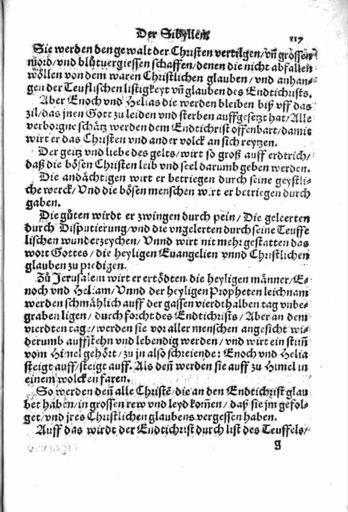 Der Sibyllen
117
Sie werden den gewalt der Christen vertilgen/vñ grössen
mord/vnd blůtvergiessen schaffen/denen die nicht abfallen
wöllen von dem waren Christlichen glauben/vnd anhan-
gen der Teuflischen listigkeyt vñ glauben des Endtchrists.
Aber Enoch vnd Helias die werden bleiben biß vff das
zil/das jnen Gott zu leiden vnd sterben auffgesetzt hat/Alle
verborgne schätz werden dem Endtchrist offenbart/damit
wirt er das Christen vnd ander volck an sich reytzen.
Der geitz vnd liebe des gelts/wirt so groß auff erdtrich/
daß die bösen Christen leib vnd seel darumb geben werden.
Die andächtigen wirt er betriegen durch seine geystli-
che werck/Vnd die bösen menschen wirt er betriegen durch
gaben.
Die gůten wirdt er zwingen durch pein/Die geleerten
durch Disputierung/vnd die vngelerten durch seine Teuffe
lischen wunderzeychen/Vnnd wirt nit mehr gestatten das
wort Gottes/die heyligen Euangelien vnnd Christlichen
glauben zu predigen.
Zů Jerusalem wirt er ertödten die heyligen männer/E-
noch vnd Heliam/Vnnd der heyligen Propheten leichnam
werden schmählich auff der gassen vierdthalben tag vnbe-
graben ligen/durch forcht des Endtchrists/Aber an dem
vierdten tage/werden sie vor aller menschen angesicht wi-
derumb aufferstehn vnd lebendig werden/vnd wirt ein stim̃
vom Himel gehört/zu jn also schreiende: Enoch vnd Helia
steigt auff/steigt auff. Als deñ werden sie auff zu Himel in
einem wolcken faren.
So werden deñ alle Christē/die an den Endtchrist glau
bet haben/in grossen rew vnd leyd kom̃en/daß sie jm gefol-
get/vnd jres Christlichen glaubens vergessen haben.
Auff das wirdt der Endtchrist durch list des Teuffels/
g